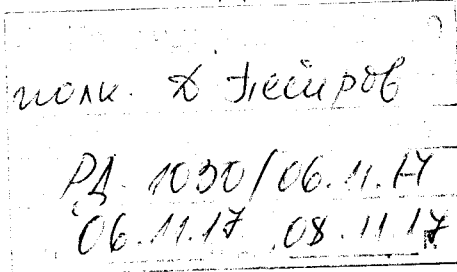 полк. Д Пейров
РД 1030/06.11.17
06.11.17 08.11.17